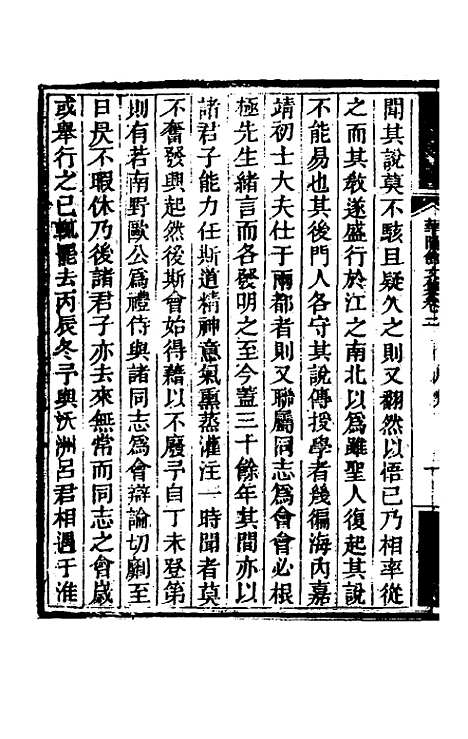 聞其說莫不駭且疑久之則又翻然以悟已乃相率從
之而其敎遂盛行於江之南北以爲雖聖人復起其說
不能易也其後門人各守其說傳授學者幾徧海內嘉
靖初士大夫仕于兩都者則又聯屬同志爲會會必根
極先生緖言而各發明之至今蓋三十餘年其間亦以
諸君子能力任斯道精神意氣熏蒸灌注一時聞者莫
不奮發興起然後斯會始得藉以不廢予自丁未登第
則有若南野歐公爲禮侍與諸同志爲會辯論切劘至
日昃不暇休乃後諸君子亦去來無常而同志之會歲
或舉行之已輒罷去丙辰冬予與沃洲呂君相遇于淮
華陽館文集卷二